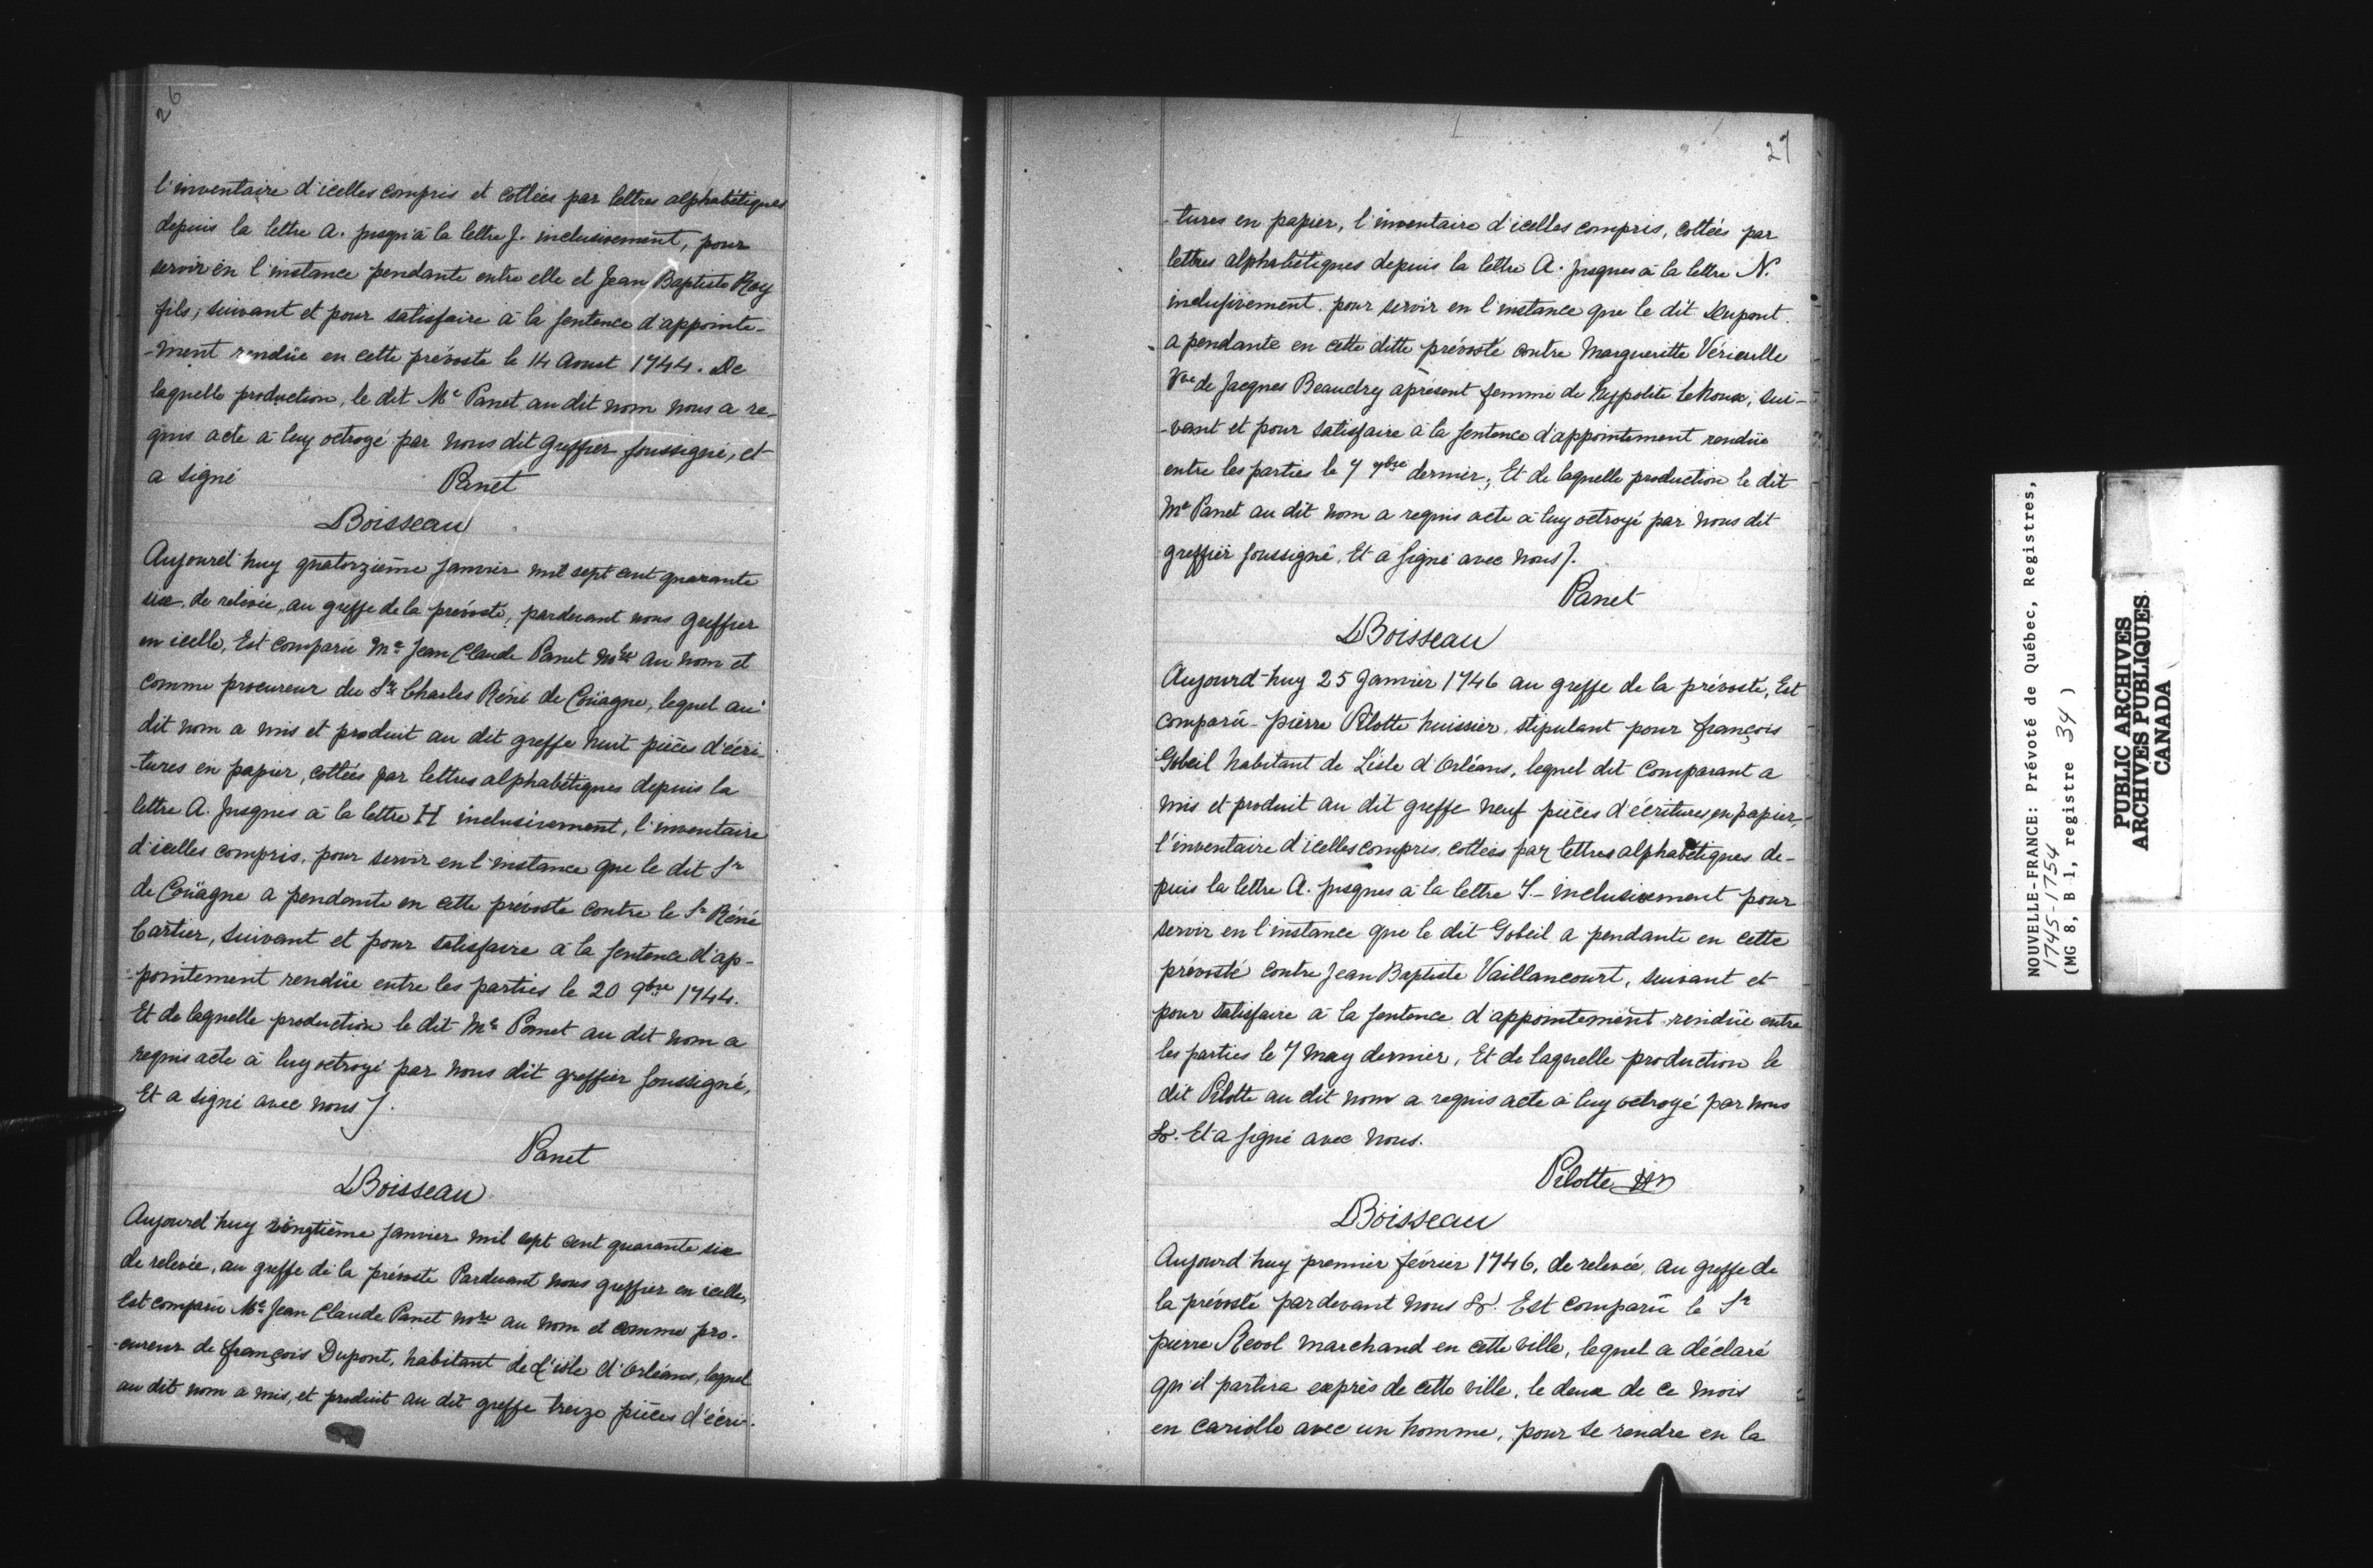 26
l'inventaire d'icelles compris et cottées par lettres alphabétiques
depuis la lettre A. jusqu'à la lettre J. inclusivement, pour
servir en l'instance pendante entre elle et Jean Baptiste Roy
fils, suivant et pour satisfaire à la sentence d'appointe-
-ment rendüe en cette prévosté le 14 Aoust 1744. De
laquelle production, le dit Me Panet au dit nom nous a re-
quis acte à luy octroyé par nous dit Greffier soussigné, et
a signé Panet
Boisseau
Aujourd'huy quatorzième janvier mil sept cent quarante
six, de relevée, au greffe de la prévosté, pardevant nous greffier
en icelle, Est comparu Me Jean Claude Panet Nore au nom et
comme procureur du Sr Charles Réné de Coüagne, lequel au
dit nom a mis et produit au dit greffe huit pièces d'écri-
-tures en papier, cottées par lettres alphabétiques depuis la
lettre A. jusques à la lettre H inclusivement, l'inventaire
d'icelles compris, pour servir en l'instance que le dit Sr
de Coüagne a pendante en cette prévosté contre le Sr Réné
Cartier, suivant et pour satisfaire à la sentence d'ap-
-pointement rendüe entre les parties le 20 9bre 1744.
Et de laquelle production le dit Me Panet au dit nom a
requis acte à luy octroyé par nous dit greffier soussigné,
Et a signé avec nous /.
Panet
Boisseau
Aujourd'huy vingtième janvier mil sept cent quarante six
de relevée, au greffe de la prévosté Pardevant nous greffier en icelle,
Est comparu Me Jean Claude Panet Nore au nom et comme pro-
-cureur de françois Dupont, habitant de L'isle d'Orléans, lequel
au dit nom a mis, et produit au dit greffe treize pièces d'écri-
27
-tures en papier, l'inventaire d'icelles compris, cottées par
lettres alphabétiques depuis la lettre A. jusques à la lettre N.
inclusivement, pour servir en l'instance que le dit Dupont
a pendante en cette ditte prévosté contre Margueritte Vérieulle
Vve de Jacques Beaudry apresent femme de hypolite Lehoux, sui-
-vant et pour satisfaire à la sentence d'appointement rendüe
entre les parties le 7 dernier, Et de laquelle production le dit
Me Panet au dit nom a requis acte à luy octroyé par nous dit
greffier soussigné, Et a signé avec nous /.
Panet
Boisseau
Aujourd-huy 25 Janvier 1746 au greffe de la prévosté, Est
comparu pierre Pilotte huissier, stipulant pour françois
Gobeil habitant de L'isle d'Orléans, lequel dit Comparant a
mis et produit au dit greffe neuf pièces d'écritures en papier,
l'inventaire d'icelles compris, cottées par lettres alphabétiques de-
puis la lettre A. jusques à la lettre I.- inclusivement pour
servir en l'instance que le dit Gobeil a pendante en cette
prévosté contre Jean Baptiste Vaillancourt, suivant et
pour satisfaire à la sentence d'appointement rendüe entre
les parties le 7 may dernier, Et de laquelle production le
dit Pilotte au dit nom a requis acte à luy octroyé par nous
&. Et a signé avec nous.
Pilotte
Boisseau
Aujourd'huy premier février 1746, de relevée, au greffe de
la prévosté pardevant nous &. Est comparu le Sr
pierre Revol marchand en cette ville, lequel a déclaré
qu'il partira exprès de cette ville, le deux de ce mois
en cariolle avec un homme, pour se rendre en la
NOUVELLE-FRANCE: Prévoté de Québec, Registres,
1745-1754
(MG 8, B 1, registre 34 )
PUBLIC ARCHIVES
ARCHIVES PUBLIQUES
CANADA